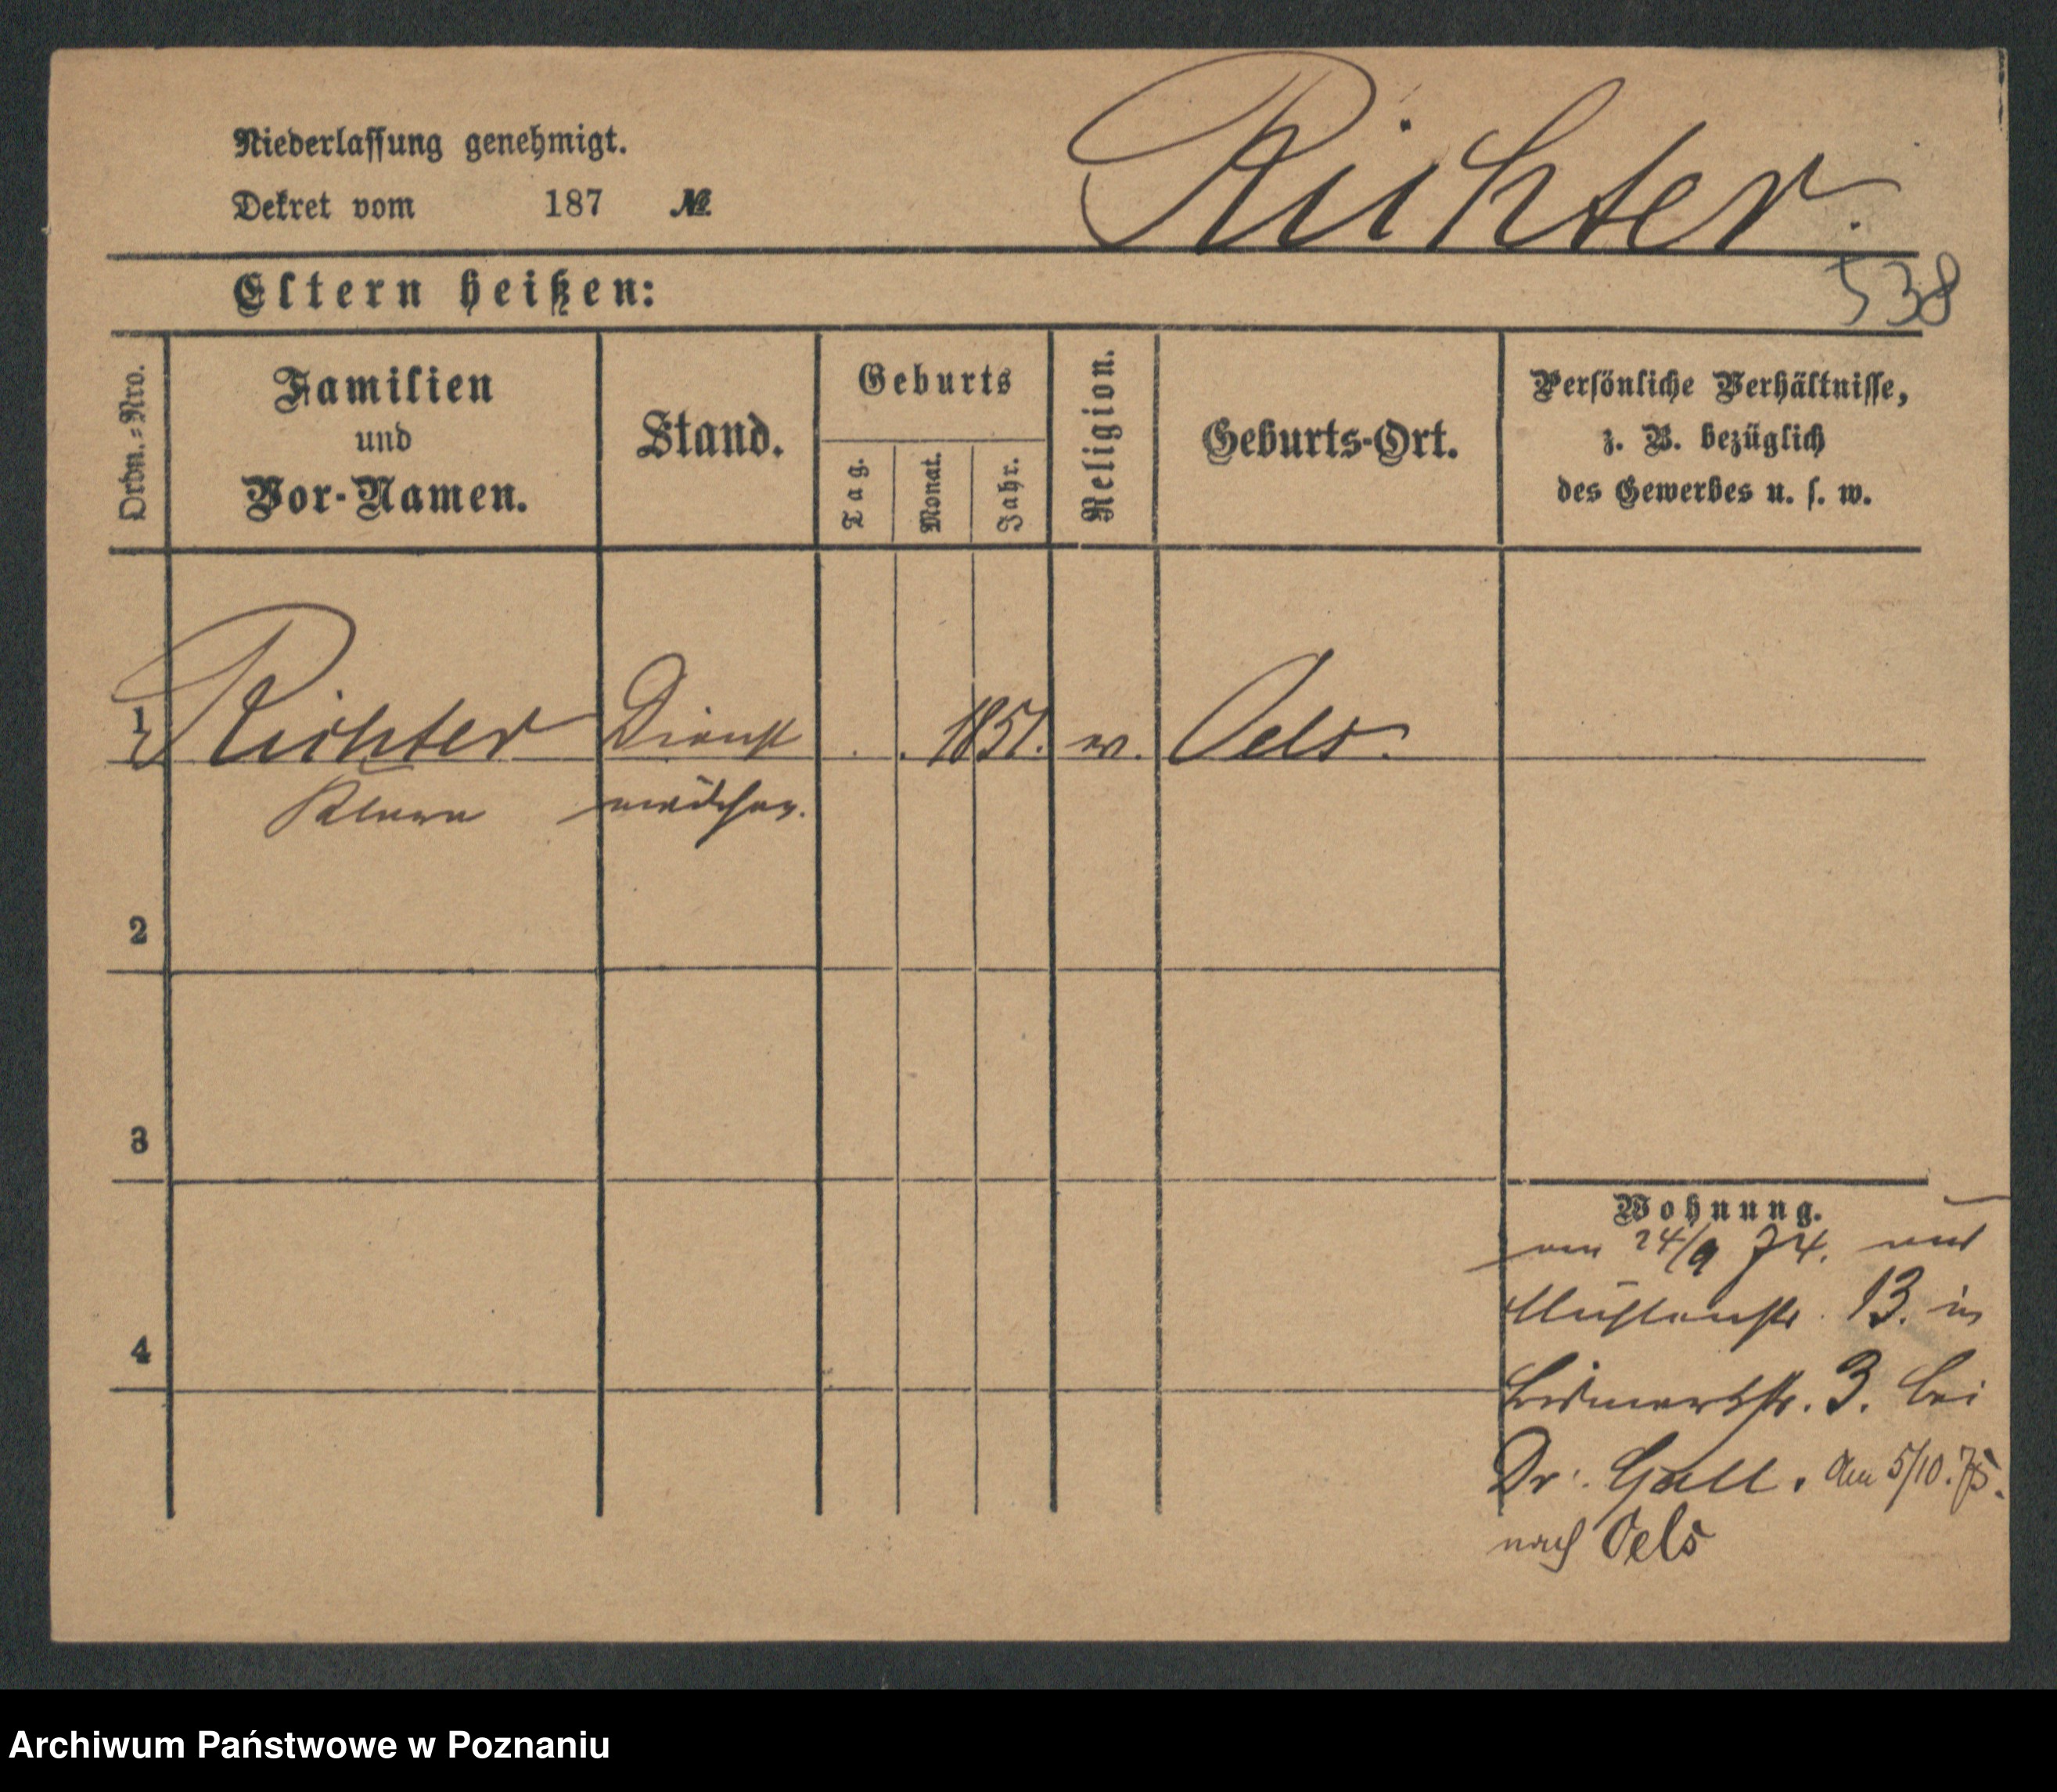 Niederlassung genehmigt.
Richter.
Dekret vom 187 №
Eltern heißen:
538
Ordn.-Nro.
Familien
und
Vor-Namen.
Stand.
Geburts
Tag.
Monat.
Jahr.
Religion.
Geburts-Ort.
Persönliche Verhältnisse,
z. B. bezüglich
des Gewerbes u. s. w.
1 Richter Dienst . . 1851. ev. Oels.
mädchen.
2
3
Wohnung.
24/9 74.
13. in
4
Bismarkstr. 3. bei
Dr. Gall. Am 5/10. 75.
nach Oels
Archiwum Państwowe w Poznaniu